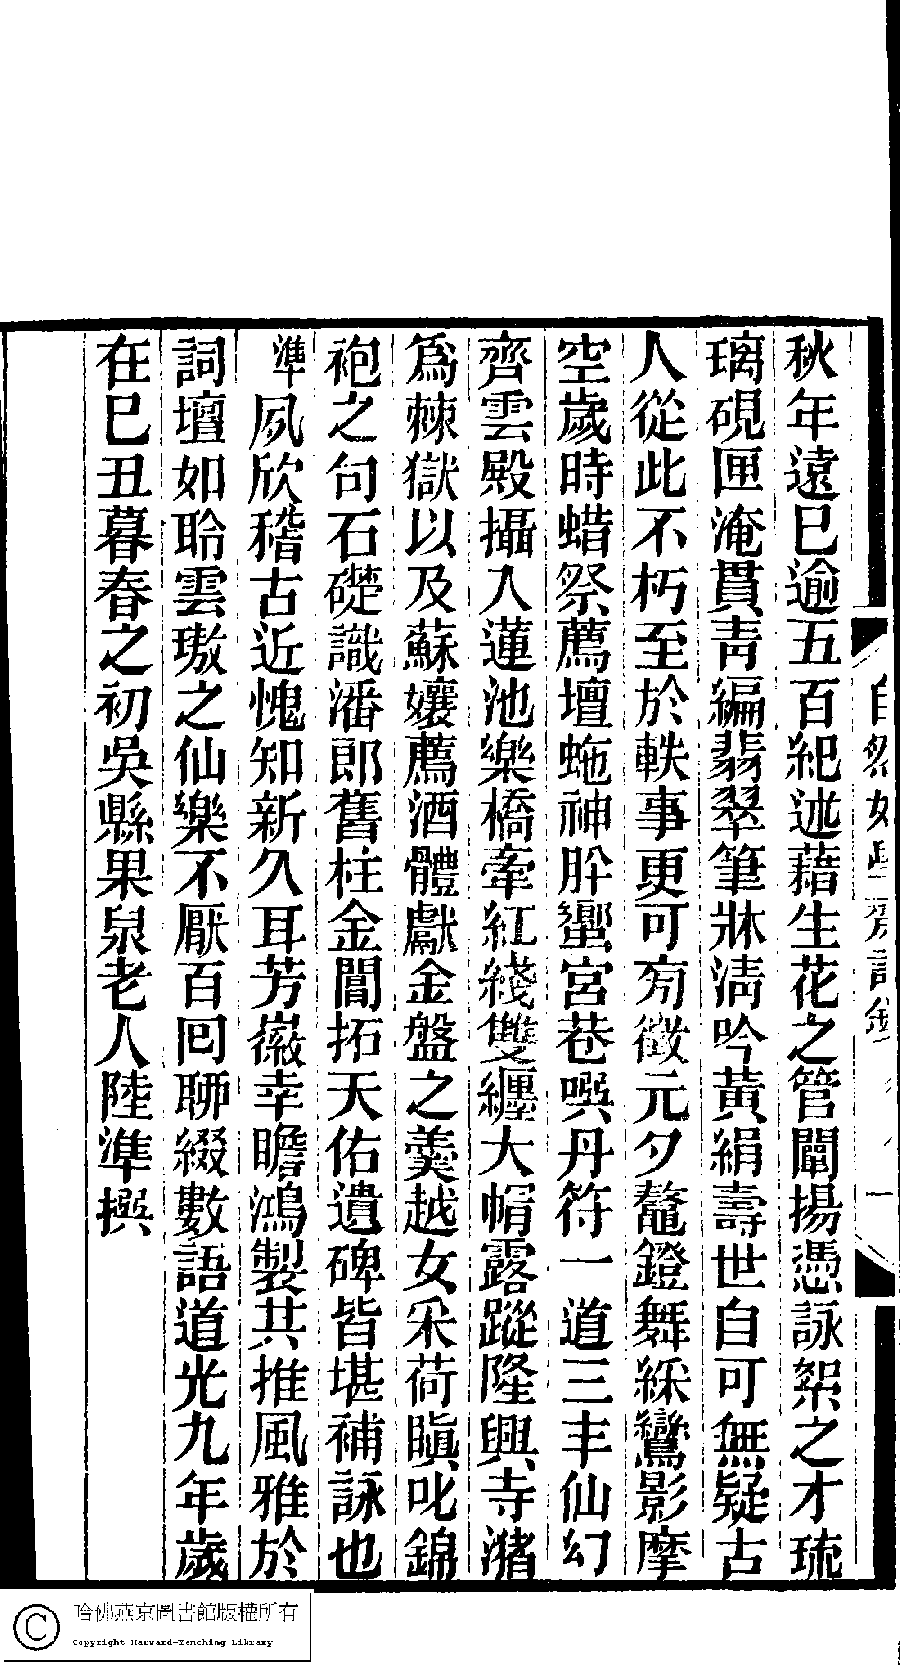 秋年遠已逾五百紀述藉生花之管闡揚憑詠絮之才琉
璃硯匣淹貫青編翡翠筆牀淸吟黃絹壽世自可無疑古
人從此不朽至於軼事更可旁徵元夕鼇鐙舞綵鸞影摩
空歲時蜡祭薦壇虵神肸蠁宮巷噀丹符一道三丰仙幻
齊雲殿攝人蓮池樂橋牽紅綫雙纏大帽露蹤隆興寺瀦
爲棘獄以及蘇孃薦酒體獻金盤之羹越女采荷瞋叱錦
袍之句石礎識潘郎舊柱金閶拓天佑遺碑皆堪補詠也
準夙欣稽古近愧知新久耳芳徽幸瞻鴻製共推風雅於
詞壇如聆雲璈之仙樂不厭百囘聊綴數語道光九年歲
在巳丑暮春之初吳縣果泉老人陸準撰
哈佛燕京圖書館版權所有
Copyright Harvard-Yenching Library